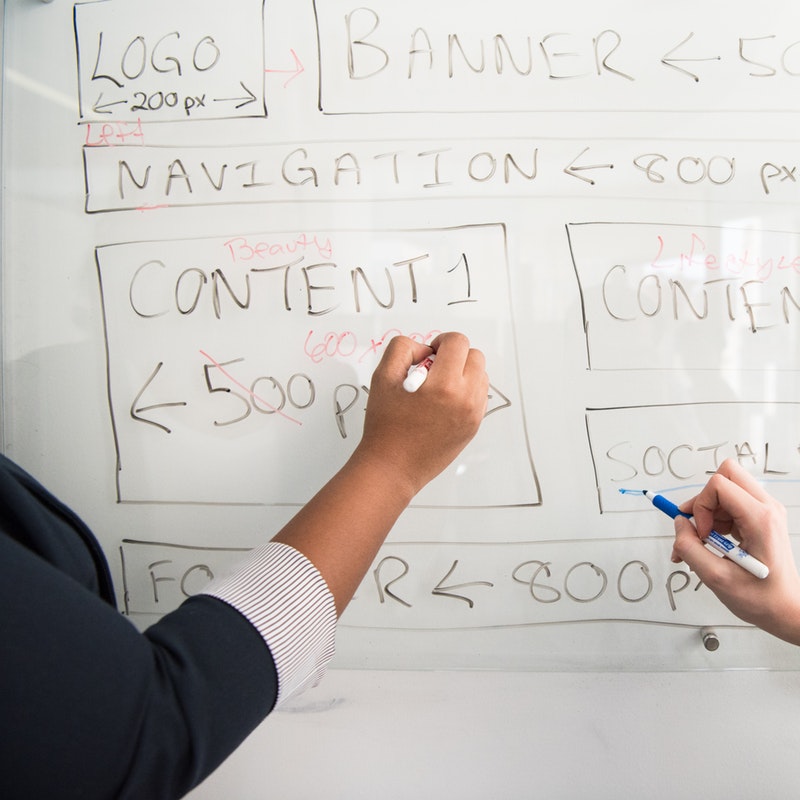 LOGO
← 200px →
→
BANNER ← 50
Left
NAVIGATION ← 800 px
Beauty
CONTENT 1
600 x
← 500 p
Lifestyle
CONTEN
SOCIAL
FO R ← 800 p